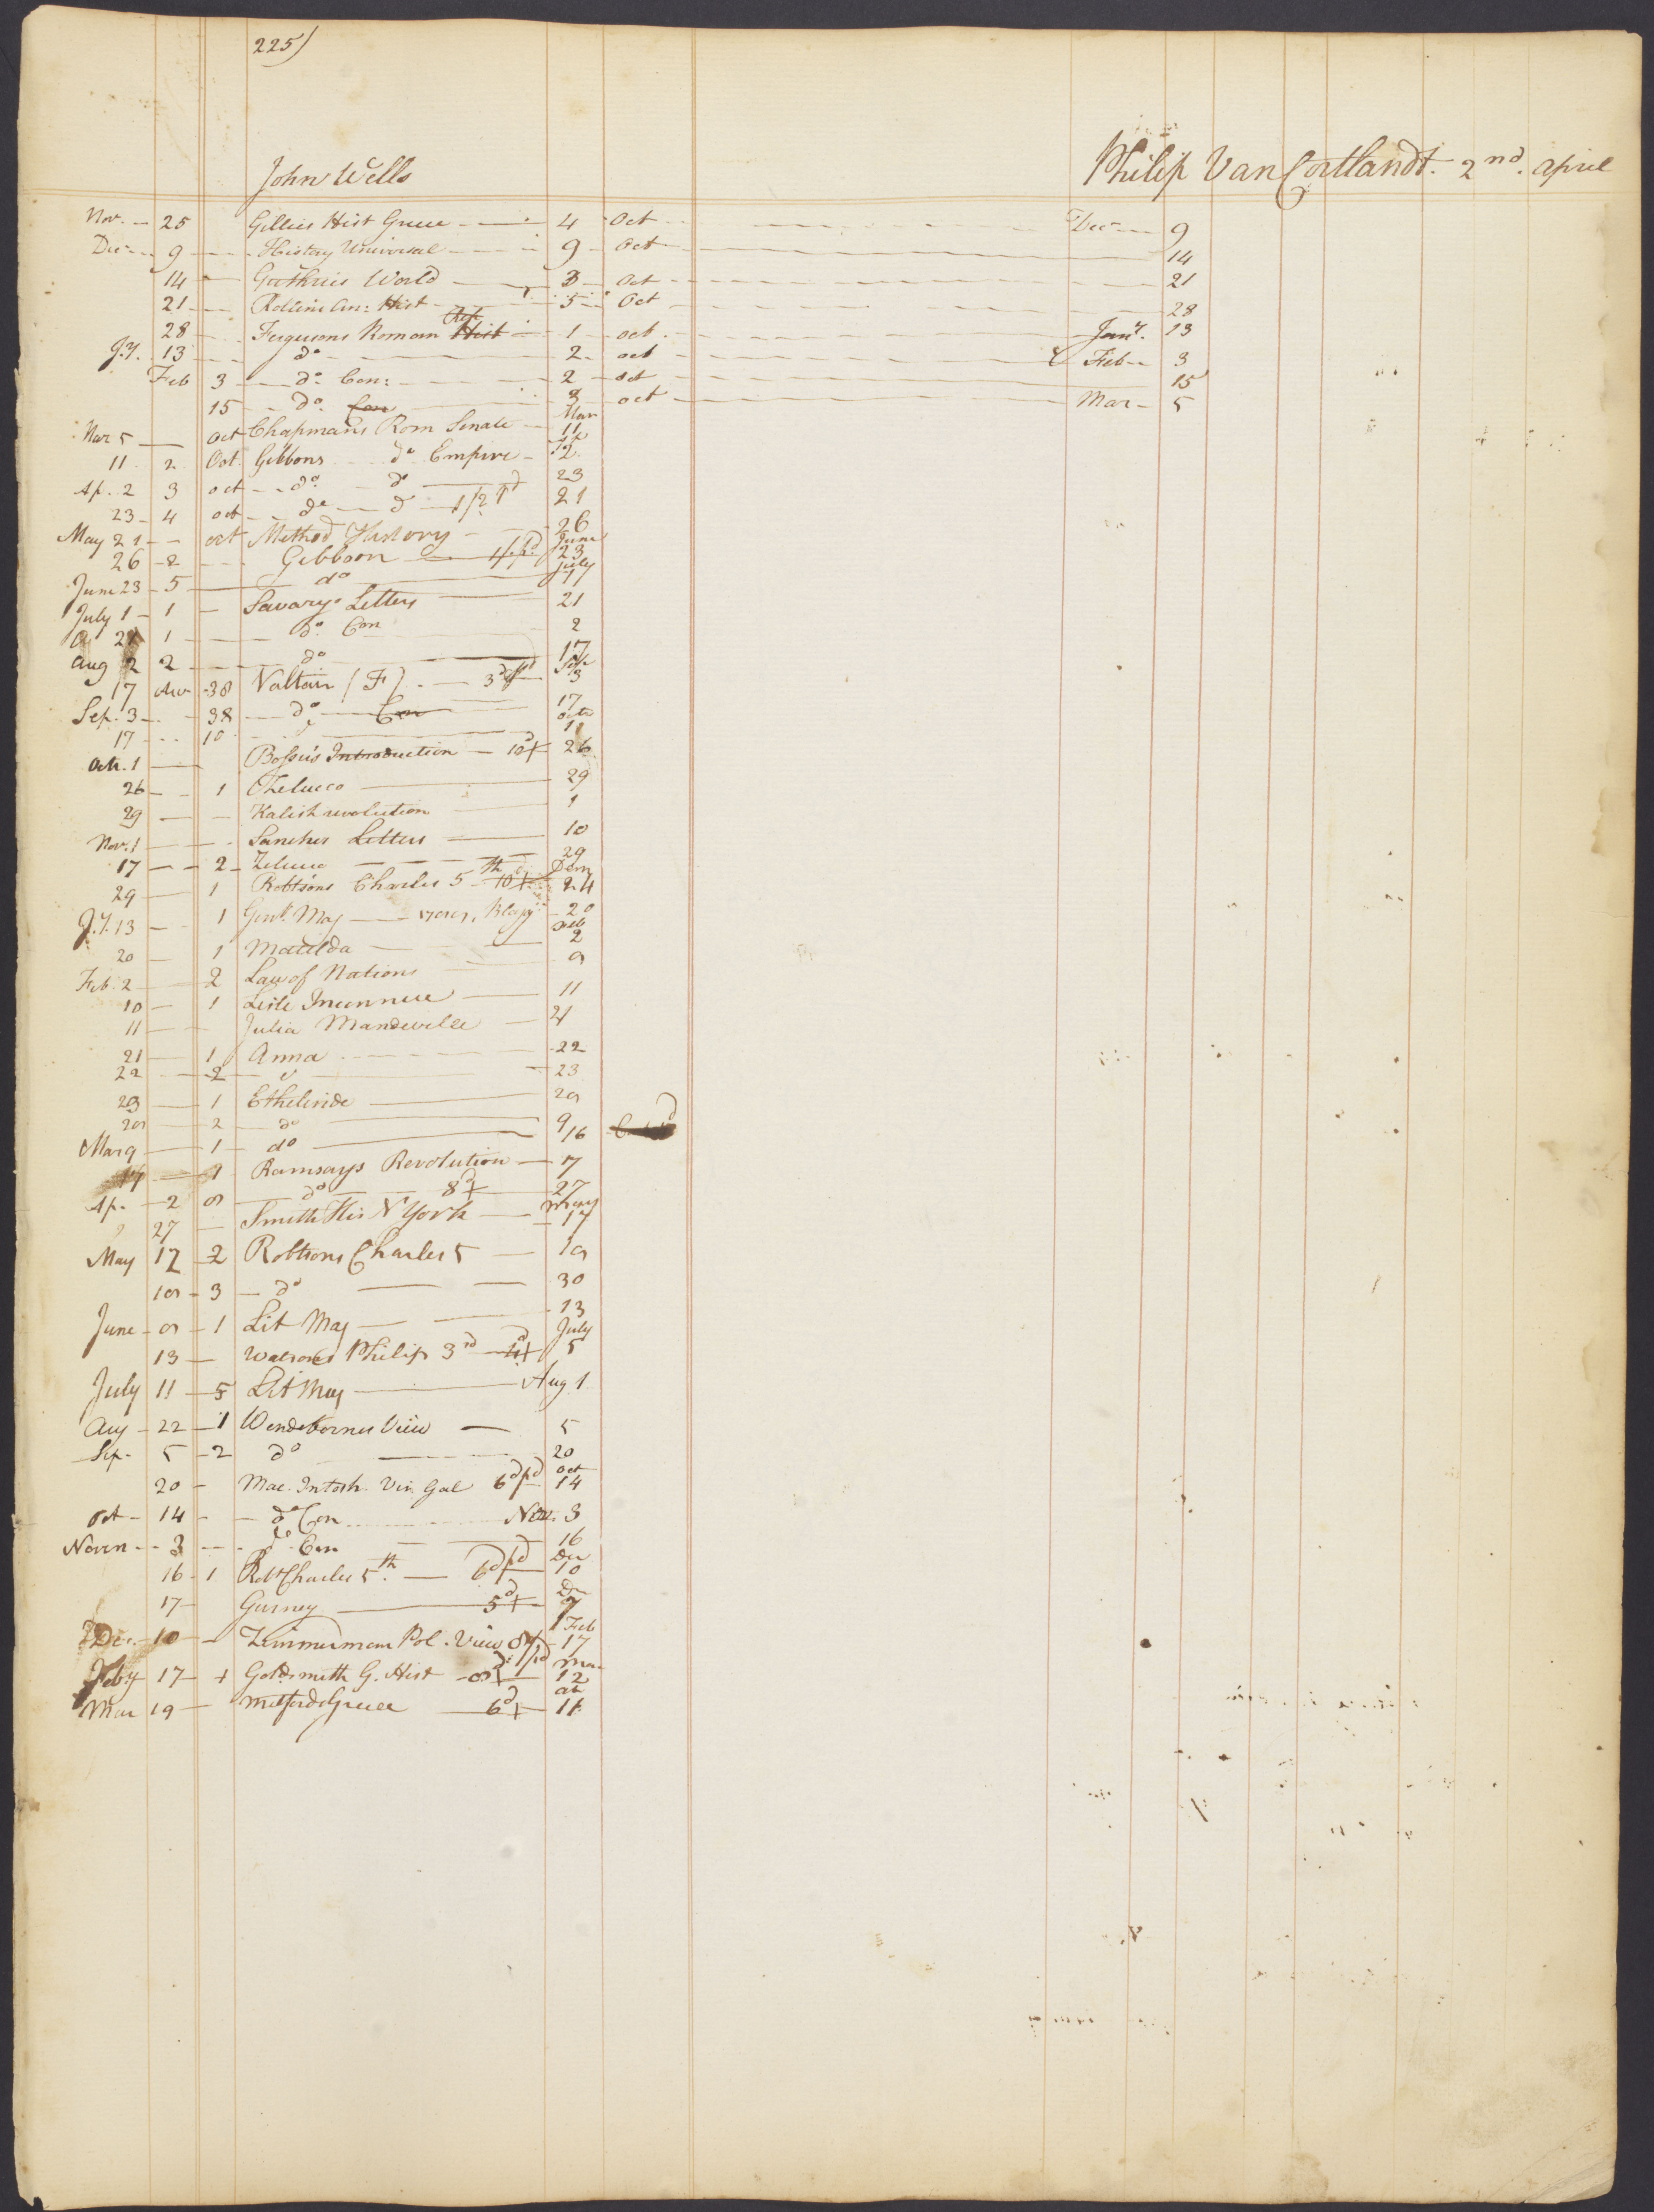 225)
John Wells
Philip Van Cortlandt. 2nd. april
Nov. 25 Gillies Hist Greece 4 Oct Decr 9
Decr 9 History Universal 9 Oct 14
14 Guthries World 3 Oct 21
21 Rollins An: Hist 5 Oct 28
28 Fergusons Roman Hist Rep 1 oct Jany. 13
Jy. 13 do 2 oct Feb 3
Feb 3 do Con: 2 Oct 15
15 do. Con 3 oct Mar 5
Mar 5 Oct Chapmans Rom Senate Mar 11
11 2 Oct. Gibbons do Empire Ap 2
Ap. 2 3 oct do. do 23
23 4 oct do do 1/2 Pd 21
May 21 oct Method History 26
26 2 Gibboon June 23
June 23 5 do July 1
July 1 1 Savarys Letters 21
21 1 do. Con 2
Aug 2 2 do 17
17 38 Voltair (F) 3d Sep 3
Sep. 3 38 do Con 17
17 10 octo 1
Octr. 1 Bossu's Introduction 10d 26
26 1 Zelucco 29
29 Kalish revolution 1
Nov. 1 Sanchos Letters 10
17 2 Zelucco 29
29 1 Robtsons Charles 5th 10d Decm 24
J.y. 13 1 Gent. Mag 20
20 1 Matilda Feb 2
Feb. 2 2 Law of Nations 9
10 1 11
11 Julia Mandeville 21
21 1 Anna 22
22 2 do 23
23 1 Ethelinde 29
29 2 do 9
Mar 9 1 do 16
1 Ramsays Revolution 7
Ap. 2 9 do 8d 27
27 Smith His N York May 17
May 17 2 Robtsons Charles 5 19
19 3 do 30
June 9 1 Lit Mag 13
13 Watsons Philip 3rd July 5
July 11 5 Lit Mag Aug 1
Aug 22 1 Wendebornes View 5
Sep. 5 2 do 20
20 Mac. Intosh. Vin. Gal 6d pd Oct 14
Oct 14 do Con Nov. 3
Novem 3 do Con 16
16 1 Robt Charles 5th. 6d pd Dec 10
17 Gurney 5d De 7
Dec. 10 Zimmerman Pol. View Feb 17
Feby 17 Goldsmith G. Hist Mar 12
Mar 19 Mitford Greece 6d ap 11